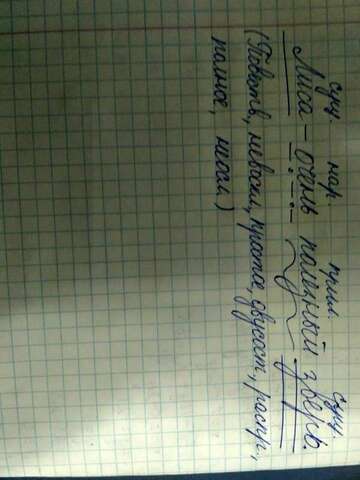 сущ. нар. прил. сущ.
Лиса – очень полезный зверь.
(Повеств., невоскл., простое, двусост., распр.,
полное, неосл.)